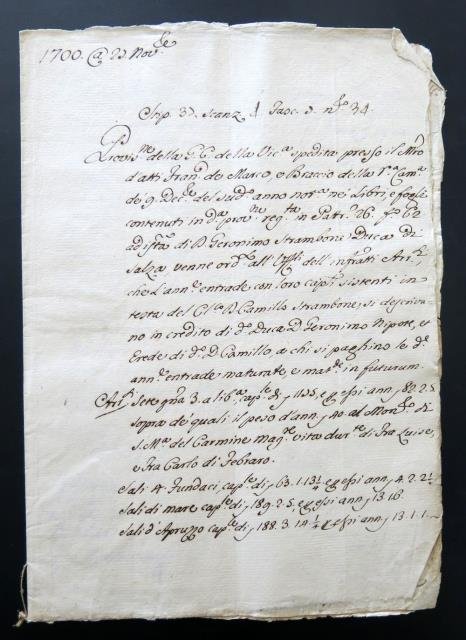 1700. @ 23 Nov.e
Scip. 3º. scanz. 1 Fasc. 3. nº. 34.
Provis.ne della G. C. della Vic.a spedita presso il Mro
d'atti Fran.co de Marco, e Braccio della R.a Cam.a
de 9. Dec.e del sud.o anno not.a nei Libri, e fogli
contenuti in d.a prov.ne reg.ta in Patr.s 26. fº 62
ad ista di D. Geronimo Strambone Duca di
Salza venne ord.o all' Off.li dell' infratti Arr.ti
che l'ann.e entrade con loro cap.li sistenti in
testa del Cl.o D. Camillo Strambone, si descriva-
no in credito di d.o Duca D. Geronimo Nipote, et
Erede di d.o D. Camillo, a chi si paghino le d.e
ann.e entrade maturate, e mat.de in futurum.
Arr.ti Sete gña 3. a lib.a cap.le di 1135, e p essi ann. 82.2.5
sopra de' quali il peso d'ann. 40 al Mon.ro di
S. M.a del Carmine mag.re vita dur.te di Fra Luise,
e Fra Carlo di Febraro.
Sali 4 Fundaci, cap.le di 63.1.13 1/4 e p essi ann. 4.2.2 1/2
Sali di mare cap.le di 189.2.5, e p essi ann. 13.16
Sali d'Apruzzo cap.le di 188.3.14 1/2 e p essi ann. 13.1.1